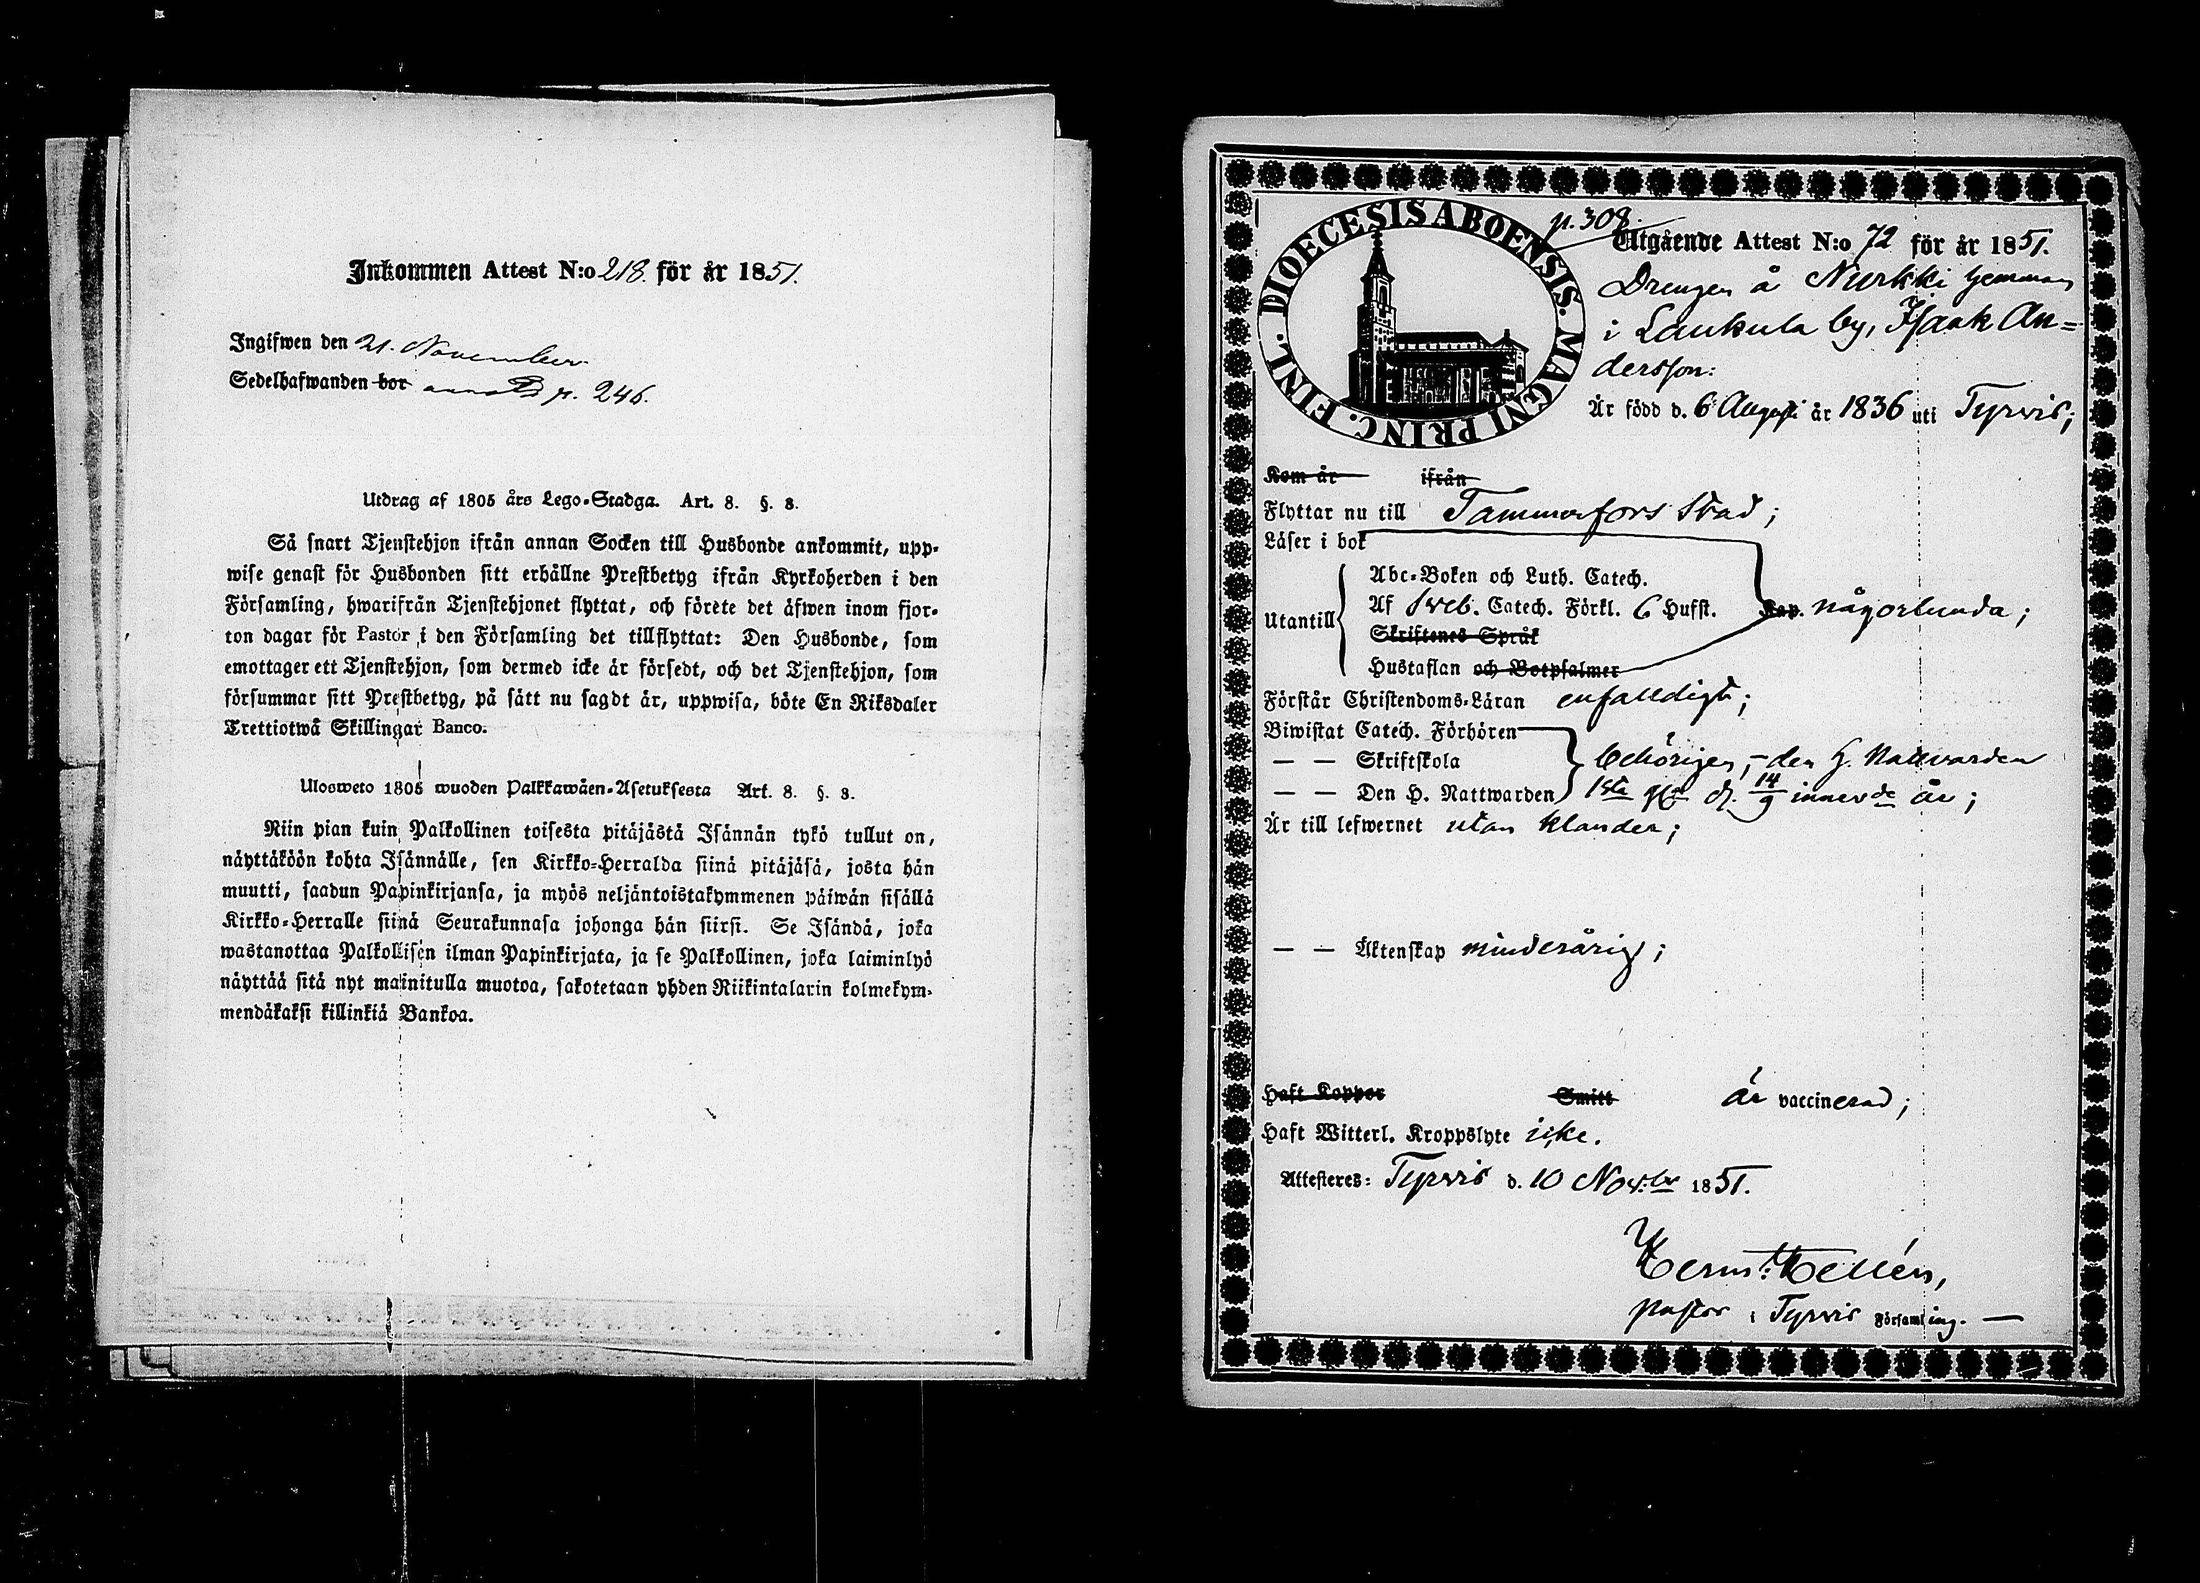 Inkommen Attest N:o 218. för år 1851.
Ingifwen den 21. November
Sedelhafwanden bor p. 246.
Utdrag af 1805 års Lego-Stadga. Art. 8. §. 8.
Så snart Tjenstehjon ifrån annan Socken till Husbonde ankommit, upp-
wise genast för Husbonden sitt erhållne Prestbetyg ifrån Kyrkoherden i den
Församling, hwarifrån Tjenstehjonet flyttat, och förete det äfwen inom fjor-
ton dagar för Pastor i den Församling det tillflyttat: Den Husbonde, som
emottager ett Tjenstehjon, som dermed icke är försedt, och det Tjenstehjon, som
försummar sitt Prestbetyg, på sätt nu sagdt är, uppwisa, böte En Riksdaler
Trettiotwå Skillingar Banco.
Ulosweto 1805 wuoden Palkkawäen-Asetuksesta Art. 8. §. 8.
Niin pian kuin Palkollinen toisesta pitäjästä Isännän tykö tullut on,
näyttäköön kohta Isännälle, sen Kirkko-Herralda siinä pitäjäsä, josta hän
muutti, saadun Papinkirjansa, ja myös neljäntoistakymmenen päiwän sisällä
Kirkko-Herralle siinä Seurakunnasa johonga hän siirsi. Se Isändä, joka
wastanottaa Palkollisen ilman Papinkirjata, ja se Palkollinen, joka laiminlyö
näyttää sitä nyt mainitulla muotoa, sakotetaan yhden Riikintalarin kolmekym-
mendäkaksi killinkiä Bankoa.
DIOECESIS ABOENSIS. MAGNI PRINC. FINL.
p. 308.
Utgående Attest N:o 72 för år 1851.
Drengen å Nurkki hemman
i Laukula by, Isaak An=
dersson:
Är född d. 6 Augusti år 1836 uti Tyrvis;
Kom år ifrån
Flyttar nu till Tammerfors Stad;
Läser i bok
Abc-Boken och Luth. Catech.
Utantill Af Sveb. Catech. Förkl. 6 Hufst. Kap. någorlunda;
Skriftenes Språk
Hustaflan och Botpsalmer
Förstår Christendoms-Läran enfalldigt;
Biwistat Catech. Förhören
— — Skriftskola behörigen, - den H. Nattvarden
— — Den H. Nattwarden 1sta ggn d. 14/9 innevde år;
Är till lefwernet utan klander;
— — Äktenskap minderårig;
Haft Koppor Smitt är vaccinerad;
Haft Witterl. Kroppslyte icke.
Attesteres: Tyrvis d. 10 Nov:br 1851.
Herm: Hellén,
pastor i Tyrvis Församling. —